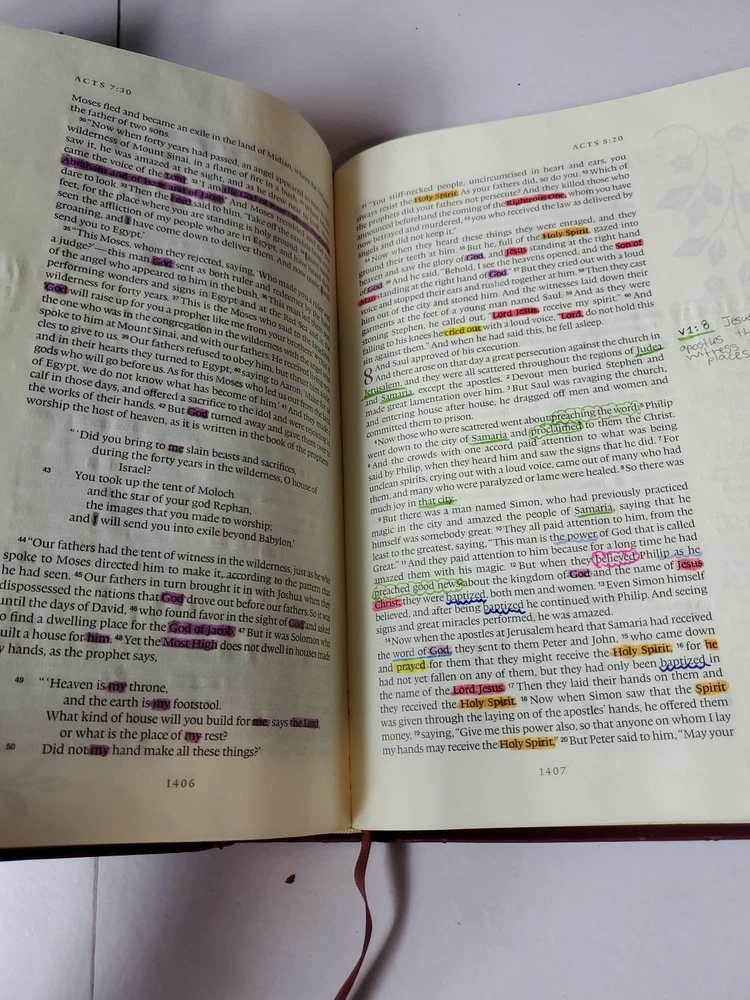 ACTS 7:30
Moses fled and became an exile in the land of Midian, where he
the father of two sons.
30 "Now when forty years had passed, an angel appeared
wilderness of Mount Sinai, in a flame of fire in a bush.
saw it, he was amazed at the sight, and as he drew near to
came the voice of the Lord: 32 'I am the God of
Abraham and of Isaac and of Jacob.' And Moses trembled
dare to look. 33 Then the Lord said to him, 'Take off the sandals
feet, for the place where you are standing is holy ground.
seen the affliction of my people who are in Egypt, and have
groaning, and I have come down to deliver them. And now come,
send you to Egypt.'
35 "This Moses, whom they rejected, saying, 'Who made you
a judge?'—this man God sent as both ruler and redeemer by the
of the angel who appeared to him in the bush. 36 This man
performing wonders and signs in Egypt and at the Red Sea and
wilderness for forty years. 37 This is the Moses who said to
'God will raise up for you a prophet like me from your brothers.'
the one who was in the congregation in the wilderness with the
spoke to him at Mount Sinai, and with our fathers. He received living
cles to give to us. 39 Our fathers refused to obey him, but thrust him
and in their hearts they turned to Egypt, 40 saying to Aaron, 'Make
gods who will go before us. As for this Moses who led us out from the
of Egypt, we do not know what has become of him.' 41 And they made
calf in those days, and offered a sacrifice to the idol and were rejoicing
the works of their hands. 42 But God turned away and gave them over to
worship the host of heaven, as it is written in the book of the prophets:
"'Did you bring to me slain beasts and sacrifices,
during the forty years in the wilderness, O house of
Israel?
43 You took up the tent of Moloch
and the star of your god Rephan,
the images that you made to worship;
and I will send you into exile beyond Babylon.'
44 "Our fathers had the tent of witness in the wilderness, just as he who
spoke to Moses directed him to make it, according to the pattern that
he had seen. 45 Our fathers in turn brought it in with Joshua when they
dispossessed the nations that God drove out before our fathers. So it was
until the days of David, 46 who found favor in the sight of God and asked
to find a dwelling place for the God of Jacob. 47 But it was Solomon who
built a house for him. 48 Yet the Most High does not dwell in houses made
by hands, as the prophet says,
49 "'Heaven is my throne,
and the earth is my footstool.
What kind of house will you build for me, says the Lord,
or what is the place of my rest?
50 Did not my hand make all these things?'
1406
ACTS 8:20
51 "You stiff-necked people, uncircumcised in heart and ears, you
always resist the Holy Spirit. As your fathers did, so do you. 52 Which of
the prophets did your fathers not persecute? And they killed those who
announced beforehand the coming of the Righteous One, whom you have
now betrayed and murdered, 53 you who received the law as delivered by
angels and did not keep it."
54 Now when they heard these things they were enraged, and they
ground their teeth at him. 55 But he, full of the Holy Spirit, gazed into
heaven and saw the glory of God, and Jesus standing at the right hand
of God. 56 And he said, "Behold, I see the heavens opened, and the Son of
Man standing at the right hand of God." 57 But they cried out with a loud
voice and stopped their ears and rushed together at him. 58 Then they cast
him out of the city and stoned him. And the witnesses laid down their
garments at the feet of a young man named Saul. 59 And as they were
stoning Stephen, he called out, "Lord Jesus, receive my spirit." 60 And
falling to his knees he cried out with a loud voice, "Lord, do not hold this
sin against them." And when he had said this, he fell asleep.
8 And Saul approved of his execution.
And there arose on that day a great persecution against the church in
Jerusalem, and they were all scattered throughout the regions of Judea
and Samaria, except the apostles. 2 Devout men buried Stephen and
made great lamentation over him. 3 But Saul was ravaging the church,
and entering house after house, he dragged off men and women and
committed them to prison.
4 Now those who were scattered went about preaching the word. 5 Philip
went down to the city of Samaria and proclaimed to them the Christ.
6 And the crowds with one accord paid attention to what was being
said by Philip, when they heard him and saw the signs that he did. 7 For
unclean spirits, crying out with a loud voice, came out of many who had
them, and many who were paralyzed or lame were healed. 8 So there was
much joy in that city.
9 But there was a man named Simon, who had previously practiced
magic in the city and amazed the people of Samaria, saying that he
himself was somebody great. 10 They all paid attention to him, from the
least to the greatest, saying, "This man is the power of God that is called
Great." 11 And they paid attention to him because for a long time he had
amazed them with his magic. 12 But when they believed Philip as he
preached good news about the kingdom of God and the name of Jesus
Christ, they were baptized, both men and women. 13 Even Simon himself
believed, and after being baptized he continued with Philip. And seeing
signs and great miracles performed, he was amazed.
14 Now when the apostles at Jerusalem heard that Samaria had received
the word of God, they sent to them Peter and John, 15 who came down
and prayed for them that they might receive the Holy Spirit, 16 for he
had not yet fallen on any of them, but they had only been baptized in
the name of the Lord Jesus. 17 Then they laid their hands on them and
they received the Holy Spirit. 18 Now when Simon saw that the Spirit
was given through the laying on of the apostles' hands, he offered them
money, 19 saying, "Give me this power also, so that anyone on whom I lay
my hands may receive the Holy Spirit." 20 But Peter said to him, "May your
1407
v1:8 Jesus
apostles
witness
places